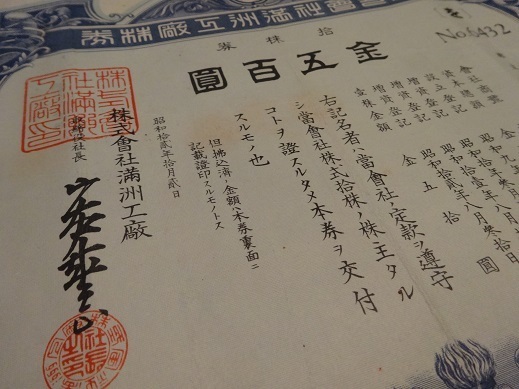 會社滿洲工廠株券
No.6432
拾株券
金五百圓
資本總額
設立登記
增資登記
增資登記
壹株金額 金五拾圓
右記名者ハ當會社ノ定款ヲ遵守
シ當會社株式拾株ノ株主タル
コトヲ證スルタメ本券ヲ交付
スルモノ也
但拂込濟ノ金額ハ本券裏面ニ
記載證印スルモノトス
昭和拾貳年拾月貳日
株式會社滿洲工廠
取締役社長
株式會社滿洲工廠印